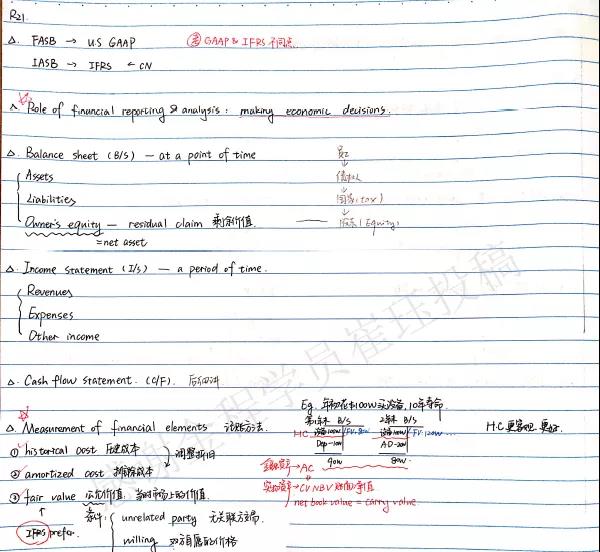 R21.
△. FASB → U.S GAAP 考 GAAP & IFRS 不同点
IASB → IFRS ← CN
△. Role of financial reporting & analysis: making economic decisions.
△. Balance sheet (B/S) — at a point of time 员工
Assets 债权人
Liabilities 国家(tax)
Owner's equity — residual claim 剩余价值. —— 股东(Equity)
=net asset
△. Income statement (I/S) — a period of time.
Revenues
Expenses
Other income
△. Cash flow statement. (C/F). 后细讲
Eg. 年初花本100W买设备, 10年寿命
△. Measurement of financial elements 计账方法. 第1年末 B/S 2年末 B/S H.C 更客观 更好.
① historical cost 历史成本 调整折旧 HC 设备100W FV: 80W 设备100W FV: 120W ...
Dep-10W AD-20W
② amortized cost 摊余成本 90W 80W.
金融资产 → AC
③ fair value 公允价值. 当时市场上的价值. 实物资产 → CV NBV 账面净值
net book value = carry value
IFRS prefer. 条件: unrelated party 无关联方交易.
willing 双方自愿的价格
感谢金程学员崔珏投稿